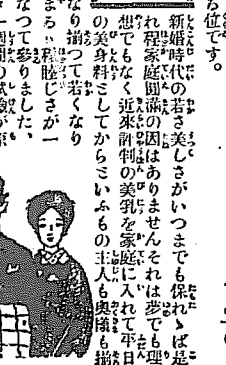 位です。
新婚時代の若さ美しさがいつまでも保れゝば是
れ程家庭圓滿の因はありませんそれは夢でも理
想でもなく近來評判の美乳を家庭に入れて平日
の美身料としてからといふもの主人も奥様も揃
なり揃つて若くなり
睦じさが一
なつて參りました、